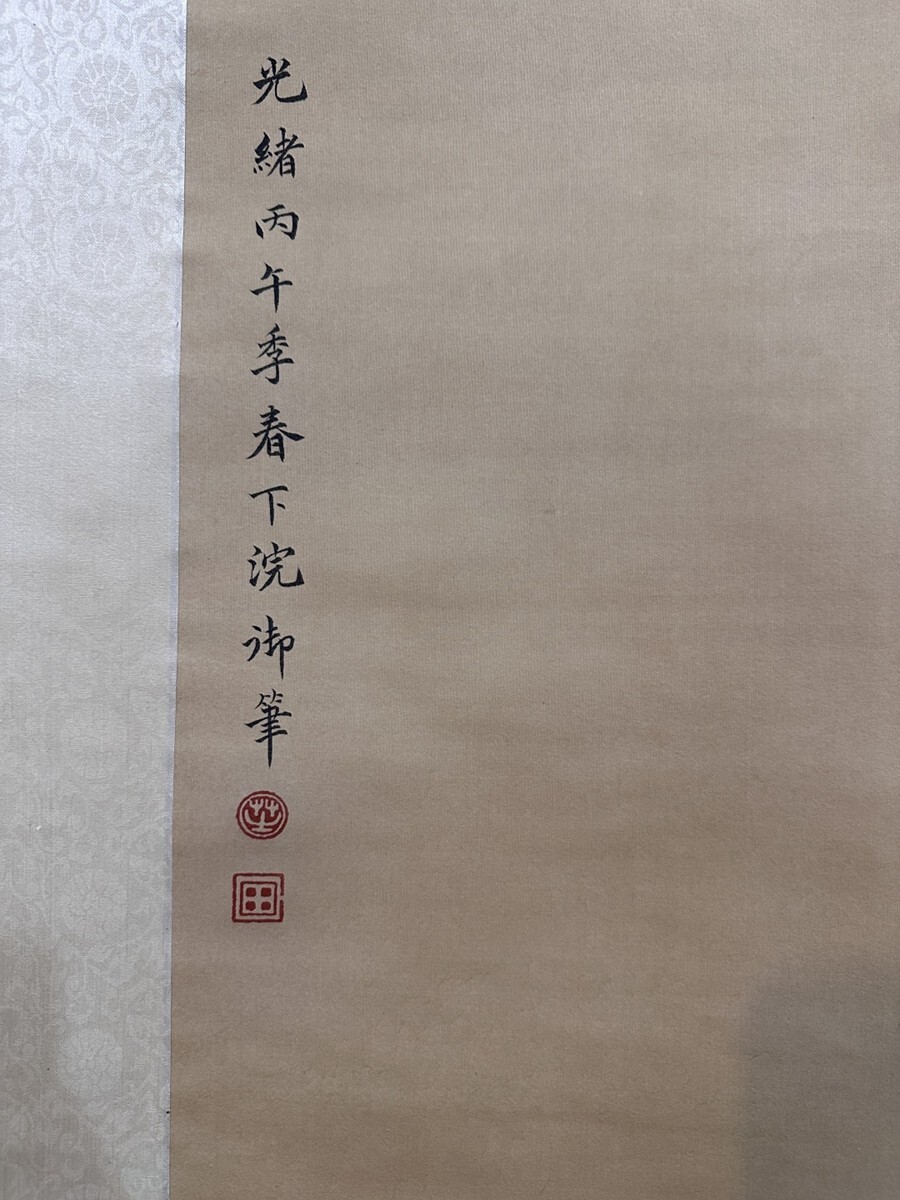 光緒丙午季春下浣御筆